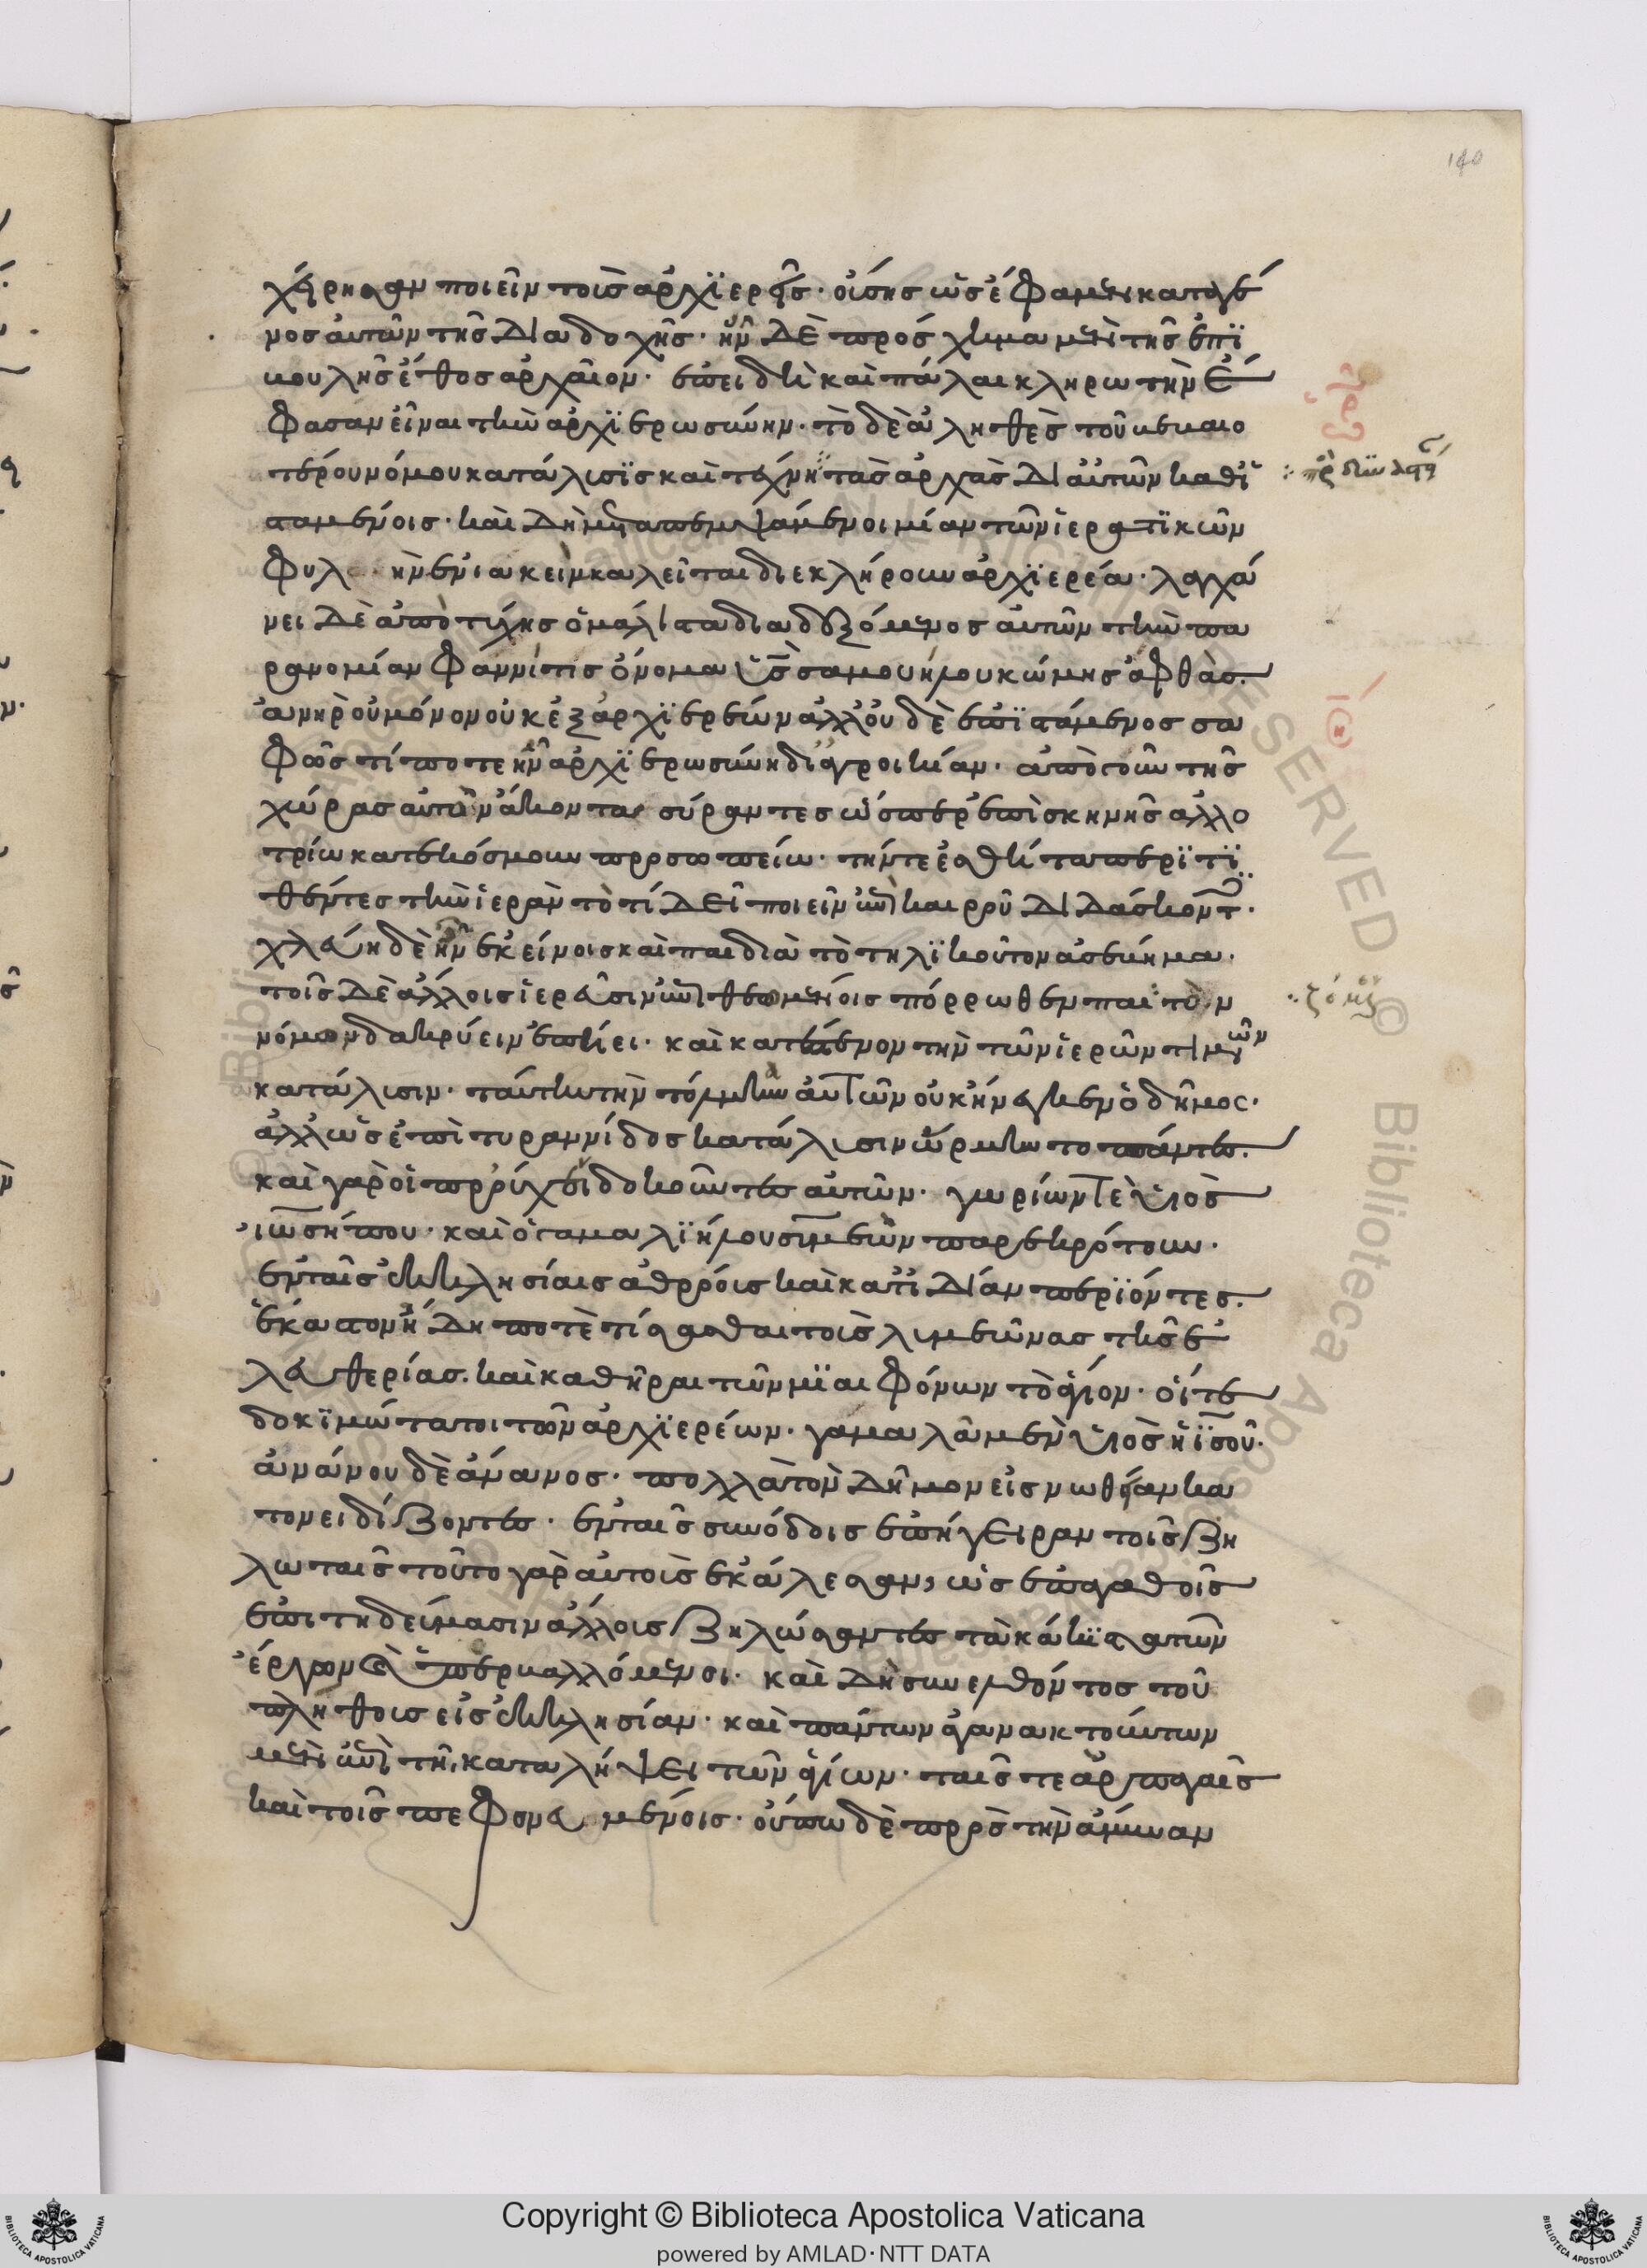 χείρησαν ποιεῖν τοὺς ἀρχϊερεῖς· οὔσης ὡς ἔφαμεν κατὰ γέ
νος αὐτῶν τῆς διαδοχῆς· ἦν δὲ πρόσχημα μὲν τῆς ἐπϊ
βουλῆς ἔθος ἀρχαῖον· ἐπειδὴ καὶ πάλαι κληρωτὴν ἔ
φασαν εἶναι τὴν ἀρχϊερωσύνην· τὸ δὲ ἀληθὲς τοῦ βεβαιο
τέρου νόμου κατάλυσϊς καὶ τέχνη τὰς ἀρχὰς δι αὐτῶν καθϊ
σταμένοις· καὶ δὴ μεταπεμψάμενοι μίαν τῶν ἱερατϊκῶν
φυλ ὴν ἐνιακεὶν καλεῖται διεκλήρουν ἀρχϊερέα· λαγχά
νει δὲ ἀπὸ τύχης ὁ μάλιστα διαδεξόμενος αὐτῶν τὴν πα
ρανομίαν φάννι τις ὄνομα υἱὸς σαμουήλου κώμης ἀφθὰς.
ἀνὴρ οὐ μόνον οὐκ ἐξ ἀρχϊερέων ἀλλ' οὐδὲ ἐπϊστάμενος σα
φῶς τί ποτε ἦν ἀρχϊερωσύνη δι' ἀγροικίαν· ἀπὸ γοῦν τῆς
χώρας αὐτὸν ἄκοντα σύραντες ὥσπερ ἐπὶ σκηνῆς ἀλλο
τρίω κατεκόσμουν προσωπείω· τήν τε ἐσθῆτα περϊτϊ
θέντες τὴν ἱερὰν τὸ τί δεῖ ποιεῖν ἐπὶ καιροῦ διδάσκοντες·
χλεύη δὲ ἦν ἐκείνοις καὶ παιδιὰ τὸ τηλϊκοῦτον ἀσέβημα·
τοῖς δὲ ἄλλοις ἱερεῦσιν ἐπὶ θεωμένοις πόρρωθεν παι τὸν
νόμον δακρύειν ἐπήει· καὶ κατέστενον τὴν τῶν ἱερῶν τιμῶν
κατάλυσιν· ταύτην τὴν τόλμαν αὐτῶν οὐκ ἤνεγκεν ὁ δῆμος·
ἀλλ ὡς ἐπὶ τυραννίδος κατάλυσιν ὥρμηντο πάντες.
καὶ γὰρ οἱ προύχειν δοκοῦντες αὐτῶν· γωρίων τε υἱὸς
ἰωσήπου· καὶ ὁ γαμαλϊήλου συμεὼν παρεκρότουν·
ἐν ταῖς ἐκκλησίαις ἀθρόοις καὶ κατ ἰδίαν περϊϊόντες.
ἕκαστον ἤδη ποτὲ τίσασθαι τοὺς λυμεῶνας τῆς ἐ
λευθερίας. καὶ καθῆραι τῶν μϊαιφόνων τὸ ἅγιον· οἵ τε
δοκϊμώτατοι τῶν ἀρχϊερέων· γαμαλᾶ μὲν υἱὸς ἰησοῦ·
ἀνάνου δὲ ἄνανος· πολλὰ τὸν δῆμον εἰς νωθείαν κα
τονειδίζοντες· ἐν ταῖς συνόδοις ἐπήγειραν τοῖς ζη
λωταῖς τοῦτο γὰρ αὐτοὺς ἐκάλεσαν, ὡς ἐπ ἀγαθοῖς
ἐπιτηδεύμασιν ἀλλ' οὐ ζηλώσαντες τὰ κάκϊστα τῶν
ἔργων ὑπερβαλλόμενοι· καὶ δὴ συνελθόντος τοῦ
πλήθους εἰς ἐκκλησίαν· καὶ πάντων ἀγανακτούντων
μὲν ἐπὶ τῆ καταλήψει τῶν ἁγίων· ταῖς τε ἁρπαγαῖς
καὶ τοῖς πεφονευμένοις· οὔπω δὲ πρὸς τὴν ἄμυναν